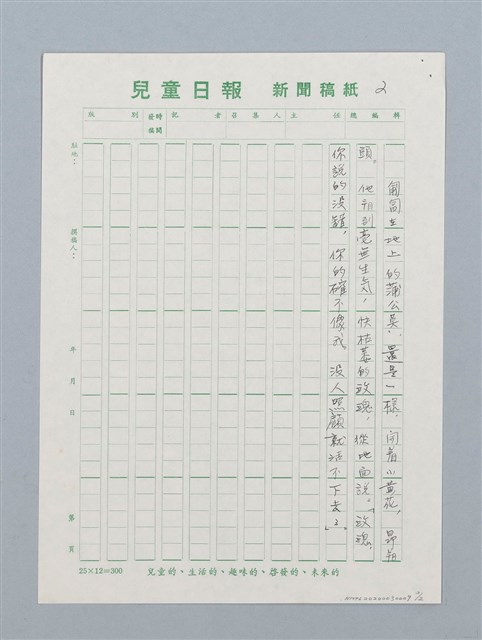 兒童日報 新聞稿紙 2
版 別 發稿時間 記 者 召 集 人 主 任 總 編 輯
匍匐在地上的蒲公英,還是一樣,開着小黃花,昂着
頭。他看到毫無生氣,快枯萎的玫瑰,從地面說:「玫瑰,
你說的沒錯,你的確不像我,沒人照顧就活不下去了。」
駐地:
撰稿人:
年 月 日
第 頁
25×12=300 兒童的、生活的、趣味的、啓發的、未來的
2/2